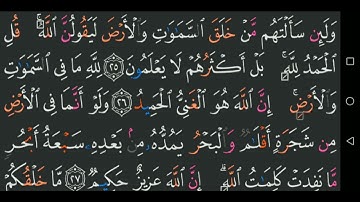 وَلَئِن سَأَلْتَهُم مَّنْ خَلَقَ ٱلسَّمَٰوَٰتِ وَٱلْأَرْضَ لَيَقُولُنَّ ٱللَّهُ ۚ قُلِ
ٱلْحَمْدُ لِلَّهِ ۚ بَلْ أَكْثَرُهُمْ لَا يَعْلَمُونَ ٢٥ لِلَّهِ مَا فِى ٱلسَّمَٰوَٰتِ
وَٱلْأَرْضِ ۚ إِنَّ ٱللَّهَ هُوَ ٱلْغَنِىُّ ٱلْحَمِيدُ ٢٦ وَلَوْ أَنَّمَا فِى ٱلْأَرْضِ
مِن شَجَرَةٍ أَقْلَٰمٌ وَٱلْبَحْرُ يَمُدُّهُۥ مِنۢ بَعْدِهِۦ سَبْعَةُ أَبْحُرٍ
مَّا نَفِدَتْ كَلِمَٰتُ ٱللَّهِ ۗ إِنَّ ٱللَّهَ عَزِيزٌ حَكِيمٌ ٢٧ مَّا خَلْقُكُمْ